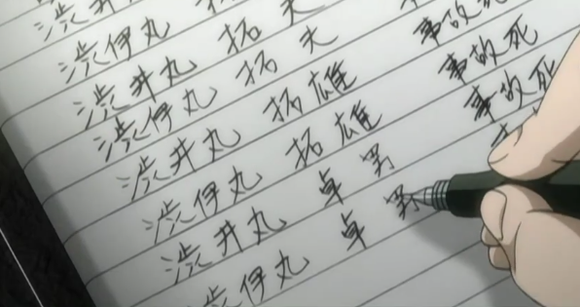 渋井丸
渋伊丸 拓夫
渋井丸 拓夫 事故死
渋伊丸 拓雄 事故死
渋井丸 拓雄 事故死
渋伊丸 卓男
渋井丸 卓男
渋伊丸